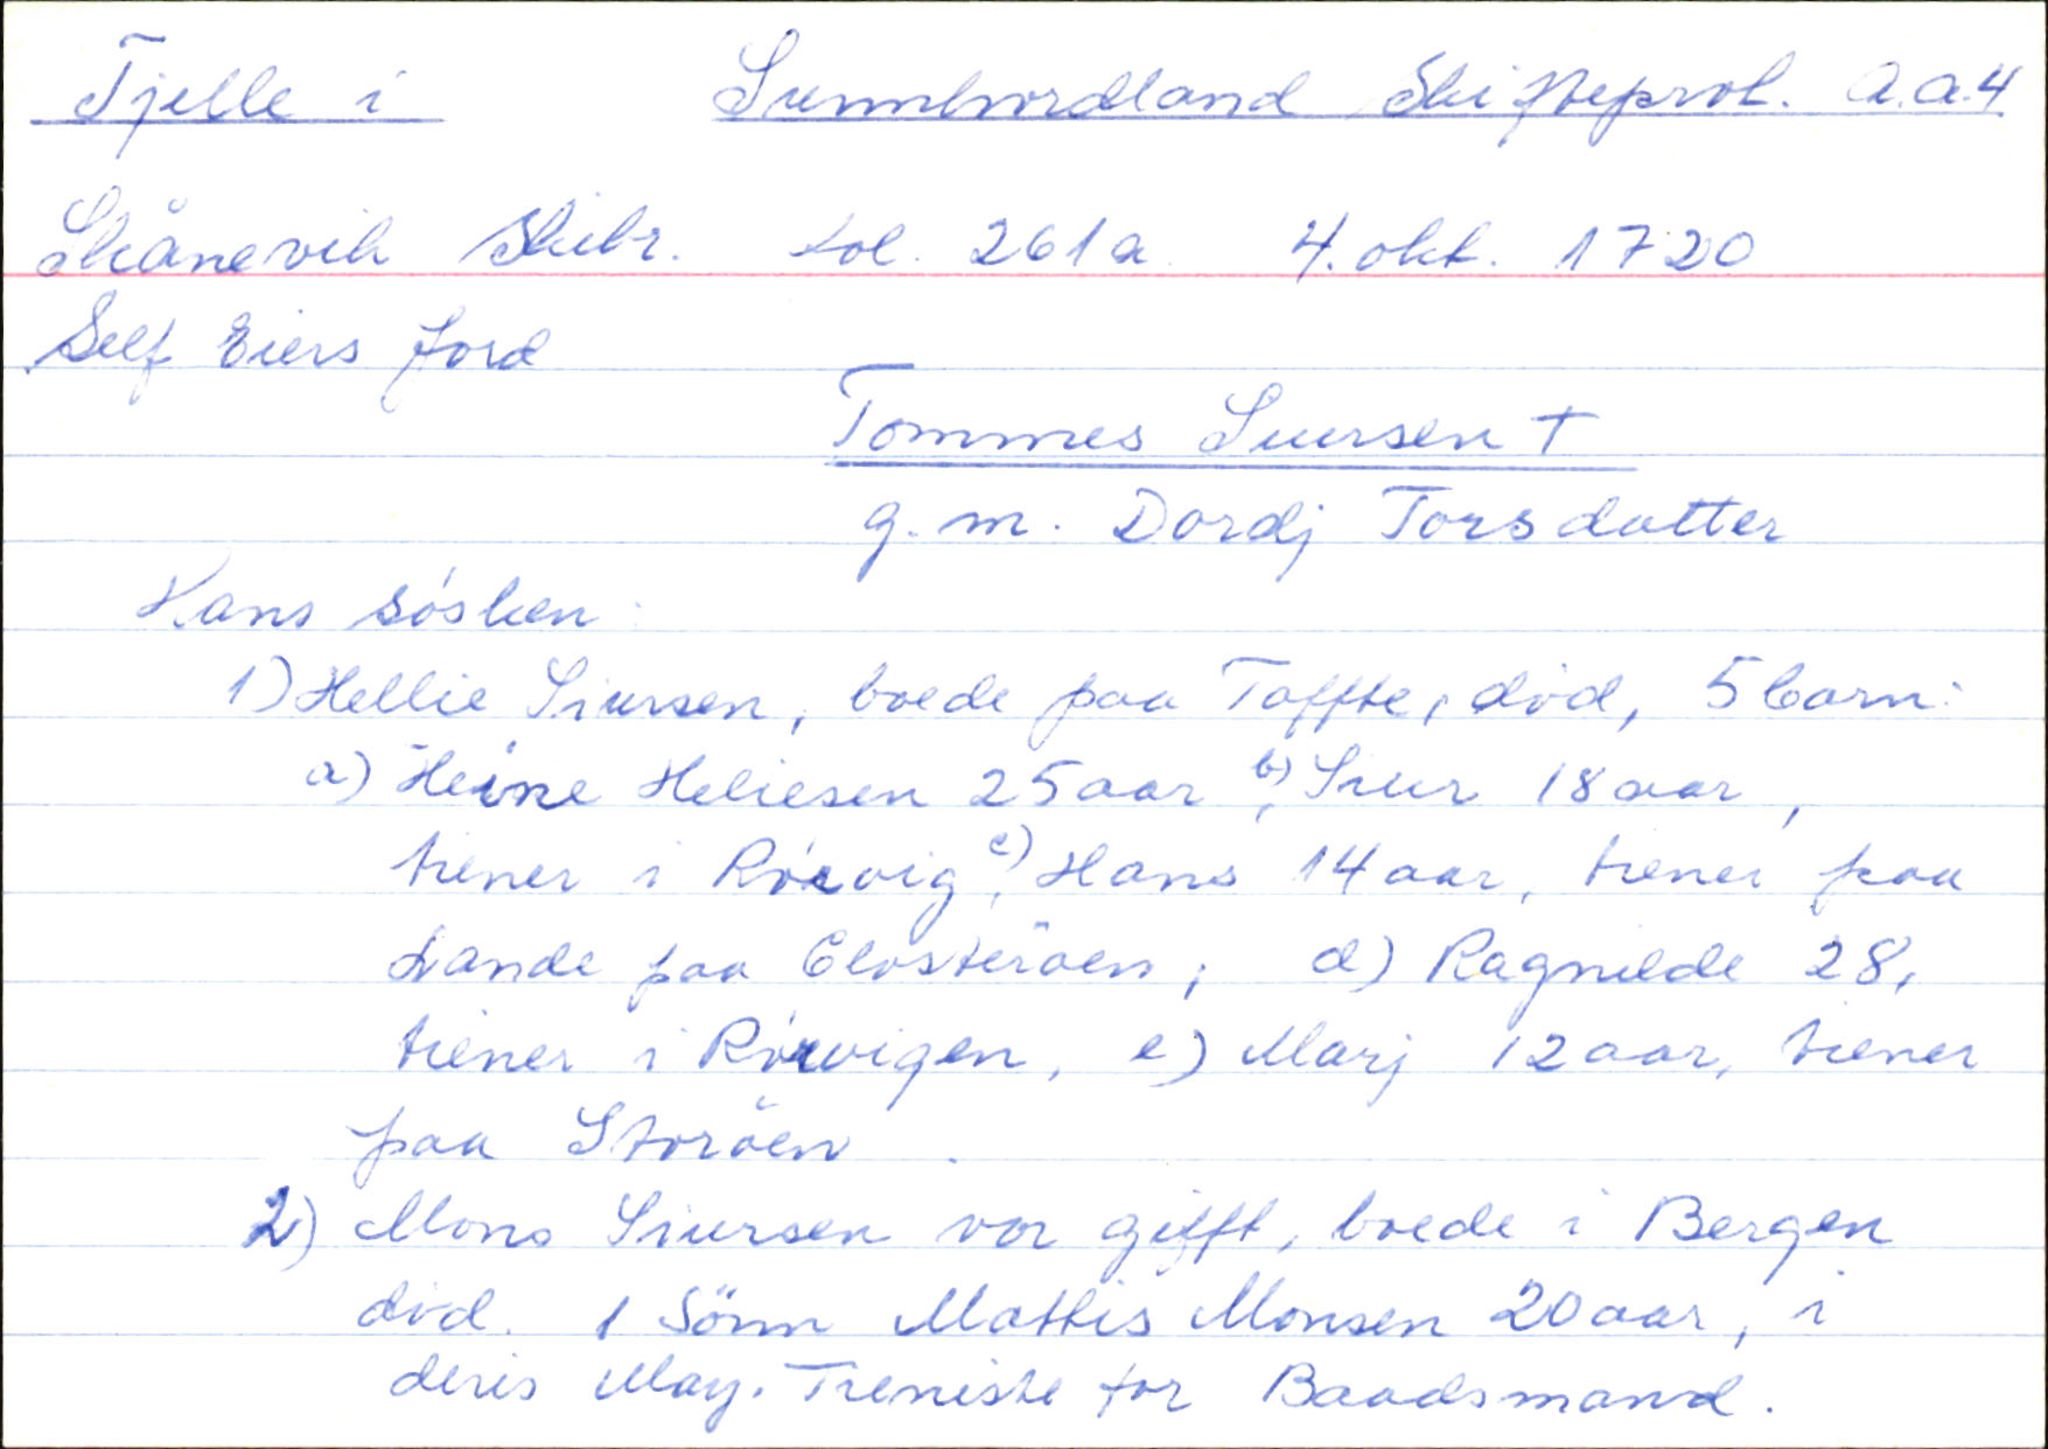 Tjelle i Sunnhordland Skifteprot. A.a.4
Skånevik Skibr. fol. 261a 4. okt. 1720
Self Eiers Jord
Tommes Siursen †
g. m. Dordj Torsdatter
Hans søsken:
1) Hellie Siursen, boede paa Toffte, död, 5 barn:
a) Heine Heliesen 25 aar, b) Siur 18 aar,
tiener i Rörvig, c) Hans 14 aar, tiener paa
Lande paa Closteröen; d) Ragnilde 28,
tiener i Rörvigen, e) Marj 12 aar, tiener
paa Storöen.
2) Mons Siursen var gifft, boede i Bergen
död. 1 Sönn Mattis Monsen 20 aar, i
deris May. Tieniste for Baadsmand.